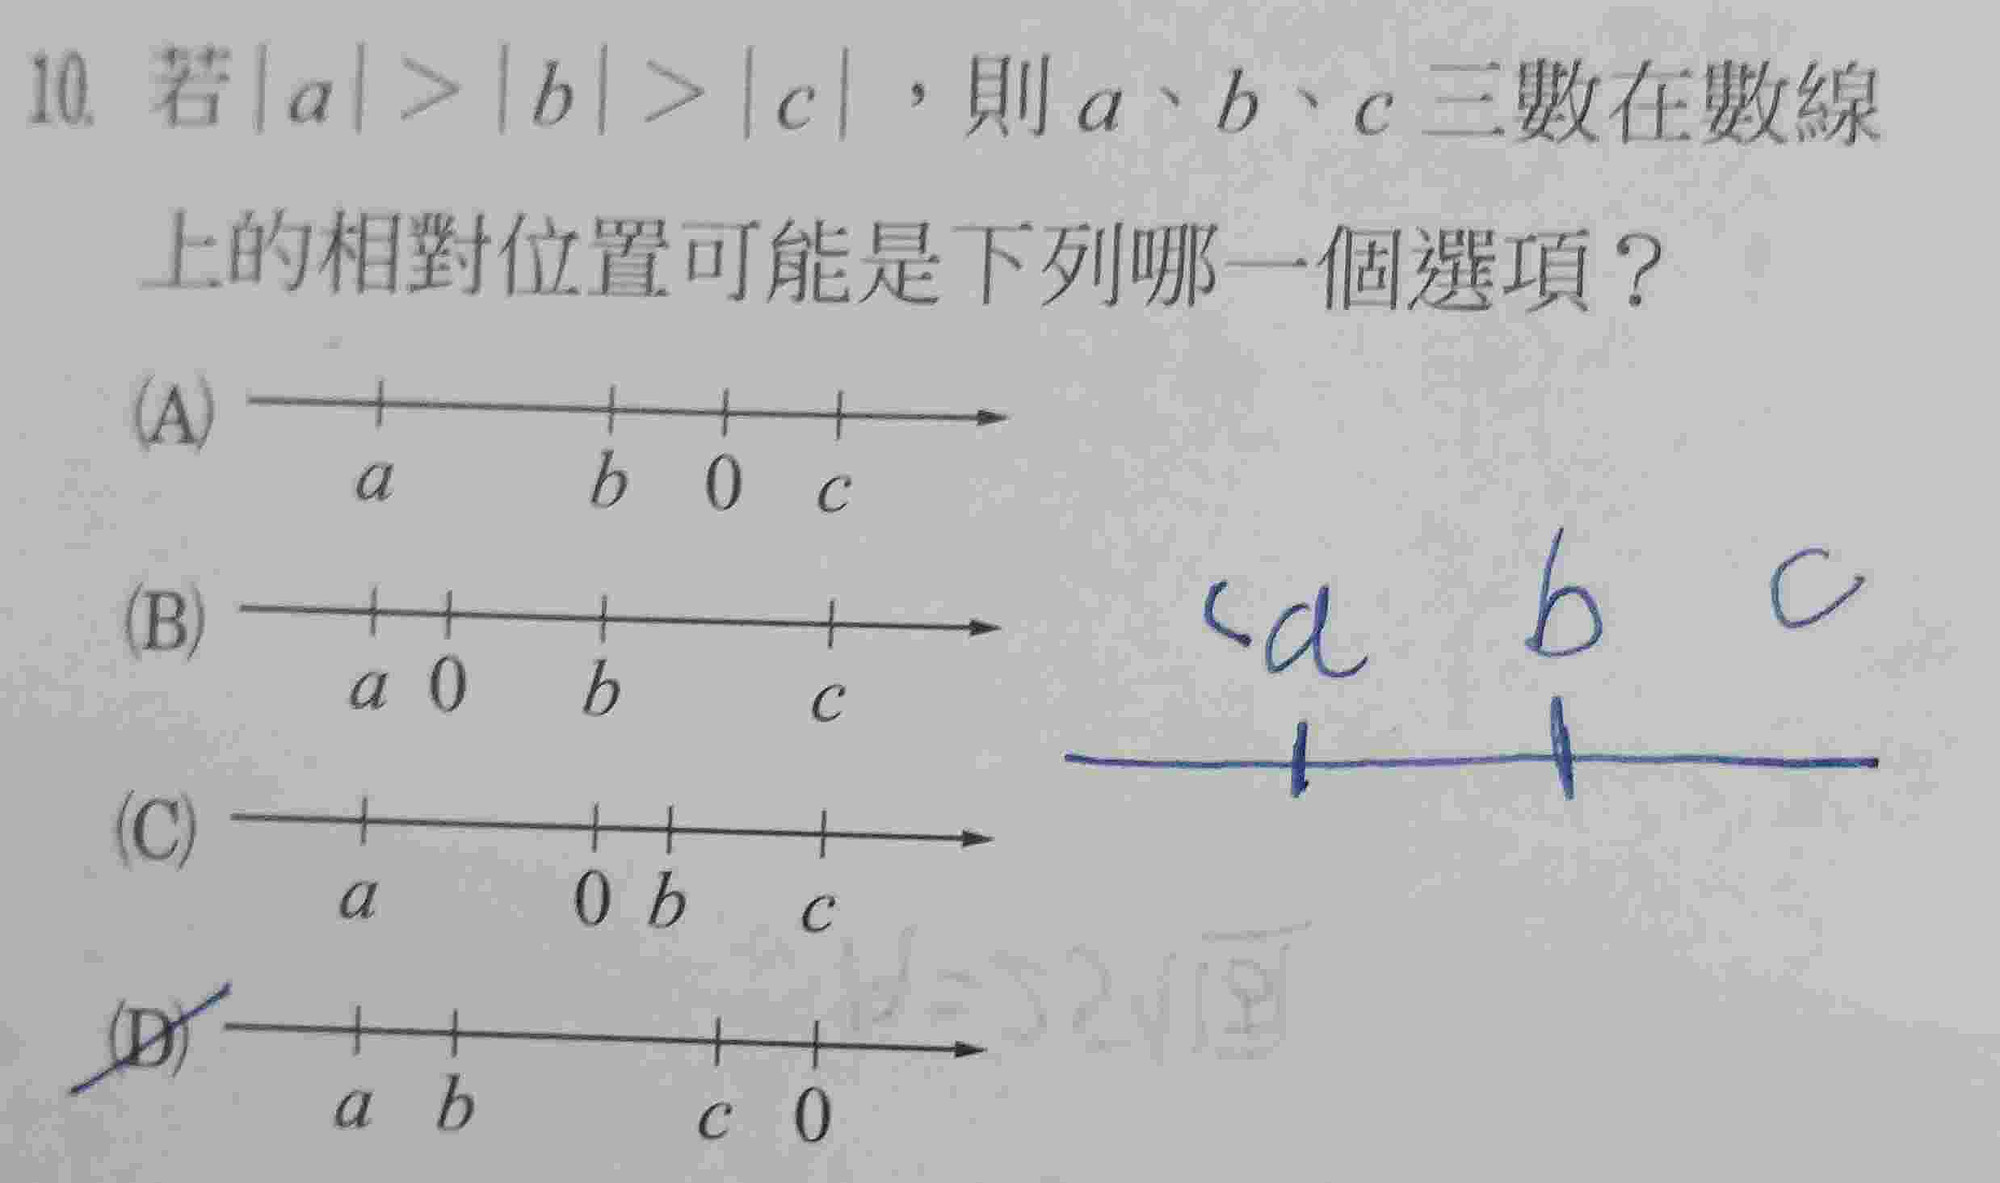 10. 若|a|>|b|>|c|，則a、b、c三數在數線
上的相對位置可能是下列哪一個選項？
(A)
a b 0 c
(B)
a 0 b c
a b c
(C)
a 0 b c
(D)
a b c 0